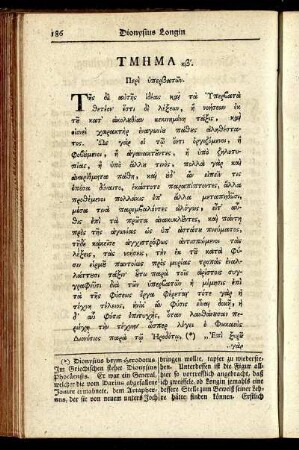 186 Dionysius Longin
ΤΜΗΜΑ κβʹ.
Περὶ ὑπερβατῶν.
Τῆς δὲ αὐτῆς ἰδέας καὶ τὰ Ὑπερβατὰ
θετέον· ἔστι δὲ λέξεων, ἢ νοήσεων ἐκ
τοῦ κατ᾽ ἀκολουθίαν κεκινημένη τάξις, καὶ
χαρακτὴρ ἐναγωνίου πάθους ἀληθέστατος.
Ὡς γὰρ οἱ τῷ ὄντι ὀργιζόμενοι, ἢ
φοβούμενοι, ἢ ἀγανακτοῦντες, ἢ ὑπὸ ζηλοτυπίας,
ἢ ὑπὸ ἄλλου τινὸς, πολλὰ γὰρ καὶ
ἀναρίθμητα πάθη, καὶ οὐδ᾽ ἂν εἰπεῖν τις
ὁπόσα δύναιτο, ἑκάστοτε παραπίπτοντες, ἄλλα
προθέμενοι πολλάκις ἐπ᾽ ἄλλα μεταπηδῶσι,
μέσα τινὰ παρεμβαλόντες ἀλόγως, εἶτ᾽ αὖθις
ἐπὶ τὰ πρῶτα ἀνακυκλοῦντες, καὶ πάντη
πρὸς τῆς ἀγωνίας ὡς ὑπ᾽ ἀστάτου πνεύματος,
τῇδε κἀκεῖσε ἀγχιστρόφως ἀντισπώμενοι τὰς
λέξεις, τὰς νοήσεις, τὴν ἐκ τοῦ κατὰ φύσιν
εἱρμοῦ παντοίως πρὸς μυρίας τροπὰς ἐναλλάττουσι
τάξιν· οὕτω παρὰ τοῖς ἀρίστοις συγγραφεῦσι
διὰ τῶν ὑπερβατῶν ἡ μίμησις ἐπὶ
τὰ τῆς φύσεως ἔργα φέρεται· τότε γὰρ ἡ
τέχνη τέλειος, ἡνίκ᾽ ἂν φύσις εἶναι δοκῇ,
ἡ δ᾽ αὖ φύσις ἐπιτυχὴς, ὅταν λανθάνουσαν περιέχῃ
τὴν τέχνην· ὥσπερ λέγει ὁ Φωκαεὺς
Διονύσιος παρὰ τῷ Ἡροδότῳ, (*) „Ἐπὶ ξυροῦ
„γὰρ
(*) Dionysius beym Herodotus
Im Griechischen stehet Dionysius
Phocäensis. Er war ein General,
welcher die vom Darius abgefallene
Jonier ermahnete, dem Artaphernes,
der sie von neuem unters Joch
bringen wollte, tapfer zu widerstehen.
Unterdessen ist die Figur allhier
so vortrefflich angebracht, daß
ich zweifele, ob Longin jemals eine
bessere Stelle zum Beweiß seiner Lehre
hätte finden können. Erstlich